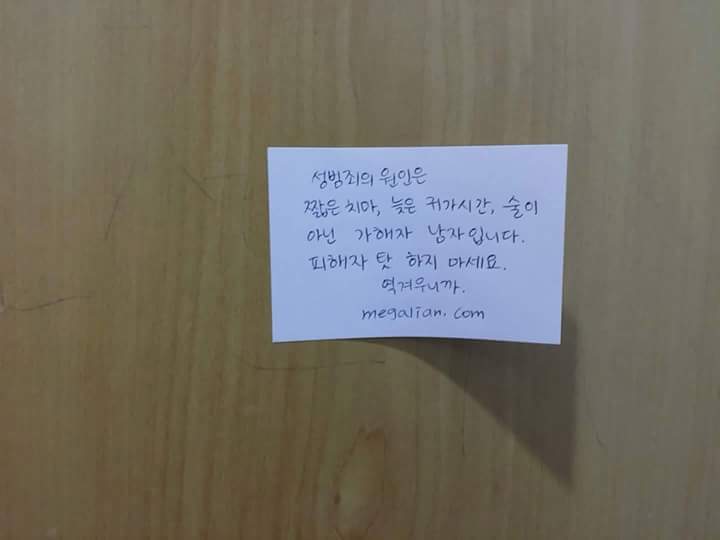 성범죄의 원인은
짧은 치마, 늦은 귀가시간, 술이
아닌 가해자 남자입니다.
피해자 탓 하지 마세요.
역겨우니까.
megalian.com